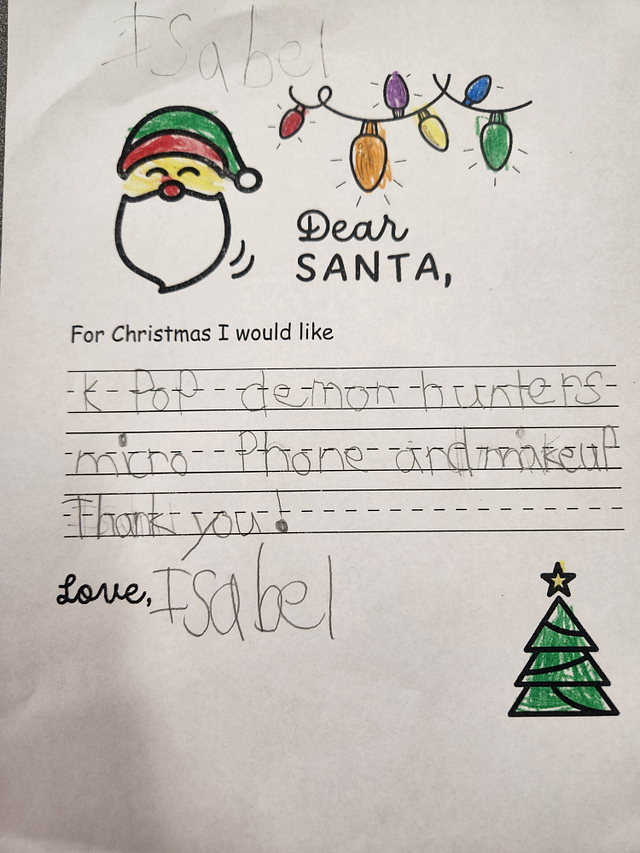 Isabel
Dear
SANTA,
For Christmas I would like
K-Pop demon hunters
micro Phone and makeup
Thank you!
Love, Isabel